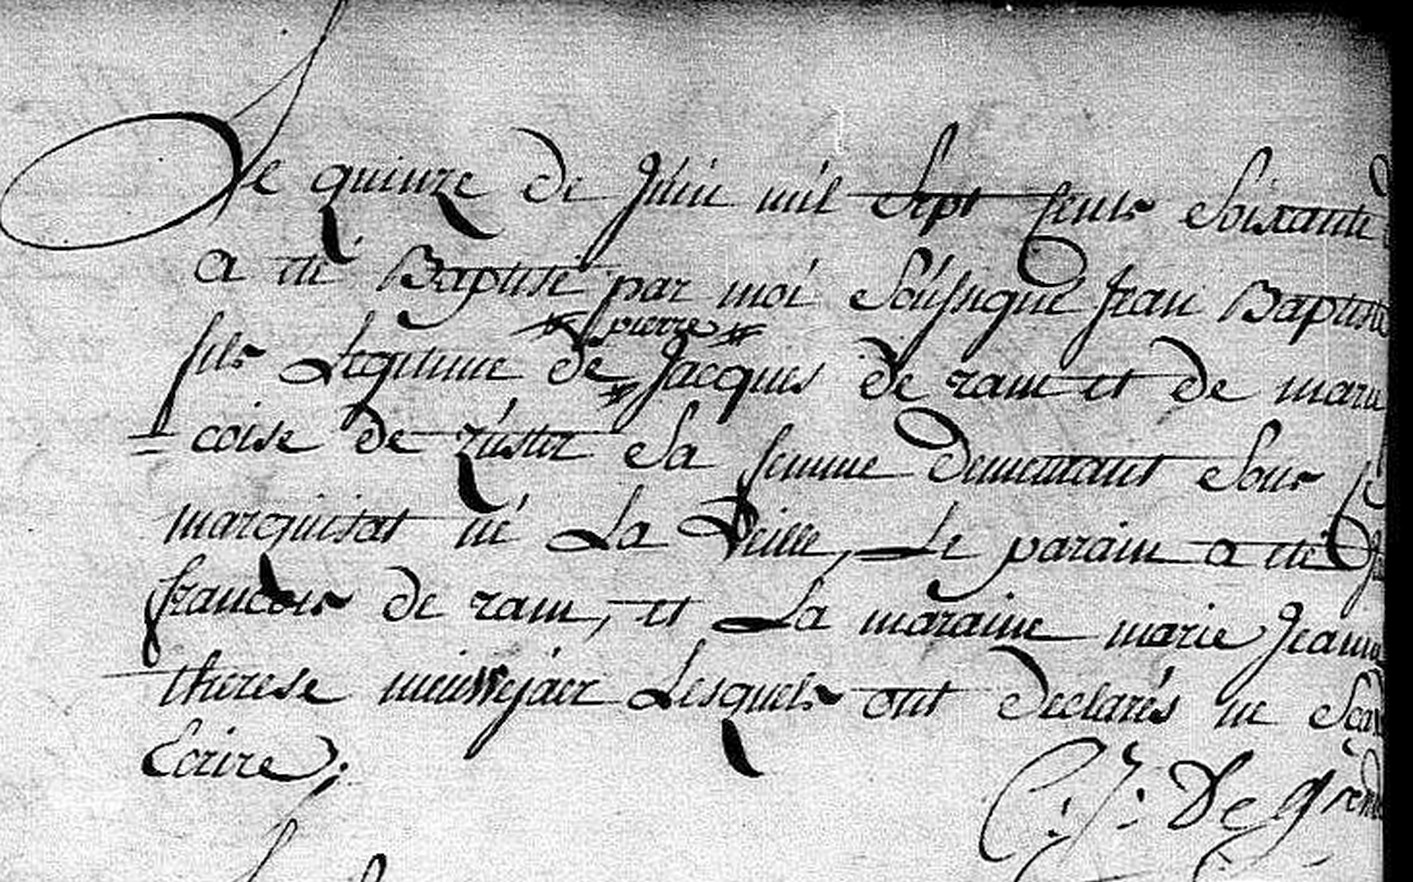 Le quinze de Juin mil Sept Cents Soixante
a eté Baptisé par moi Soussigné Jean Baptiste
pierre
fils Legitime de Jacques de ram et de marie
coise de ruster Sa femme demeurant Sous
marquisat né La Veille, Le parain a eté
francois de ram, et La maraine marie Jeanne
therese Lesquels ont declarés ne
Ecrire;
C: J: De